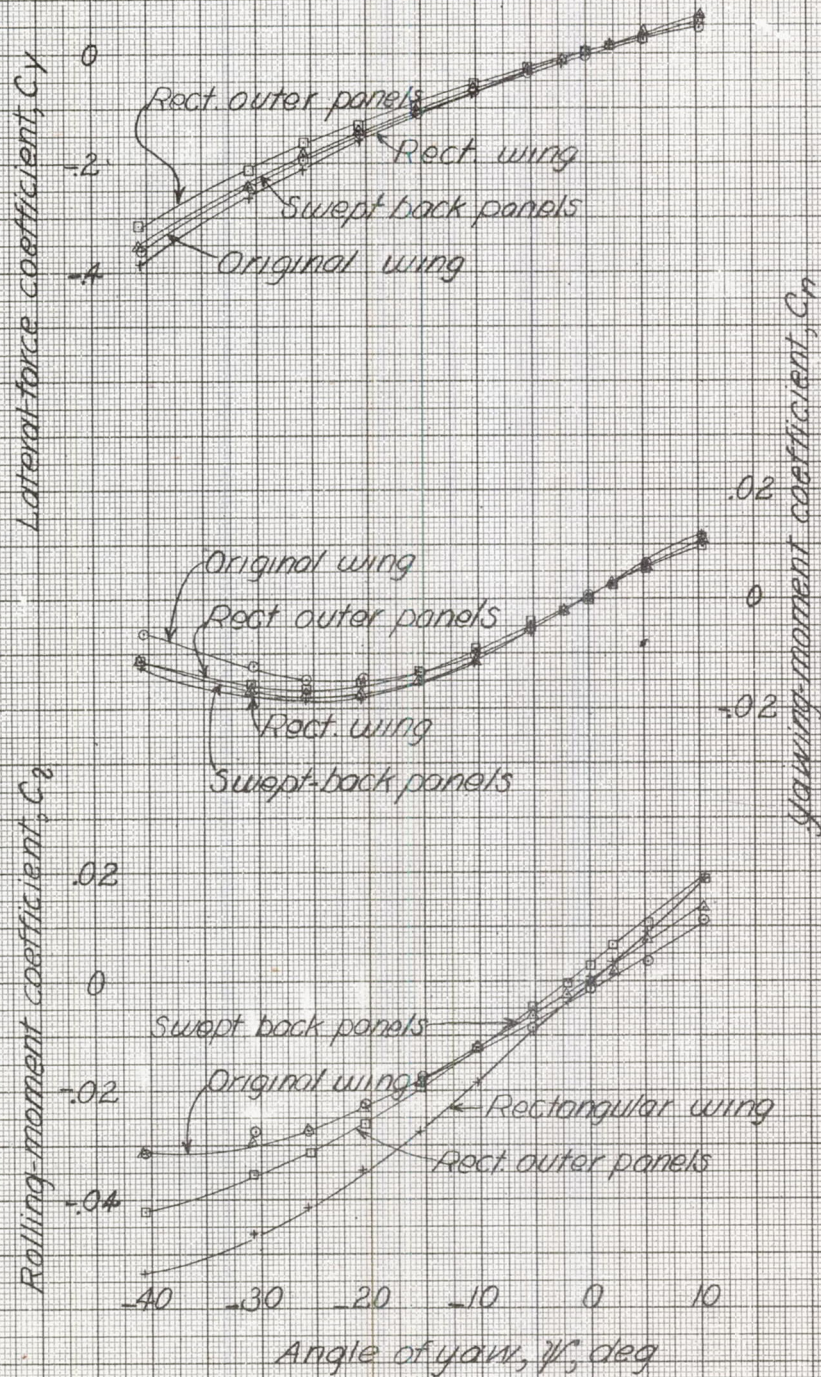 Lateral-force coefficient, Cy
0
-.2
-.4
Rect. outer panels
Rect. wing
Swept back panels
Original wing
Yawing-moment coefficient, Cn
.02
0
-.02
Original wing
Rect outer panels
Rect. wing
Swept-back panels
Rolling-moment coefficient, Cl
.02
0
-.02
-.04
Swept back panels
Original wing
Rectangular wing
Rect. outer panels
-40 -30 -20 -10 0 10
Angle of yaw, ψ, deg